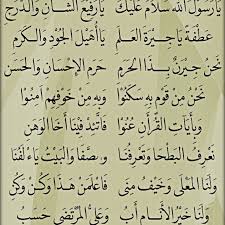 يَارَسُولَ اللّٰه سَلَامٌ عَلَيْكَ يَارَفِيعَ الشَّانِ وَالدَّرَجِ
عَطْفَةً يَاجِيْرَةَ الْعَلَمِ يَاأُهَيْلَ الْجُودِ وَالْكَرَمِ
نَحْنُ جِيْرَانٌ بِذَا الْحَرَمِ حَرَمِ الْإِحْسَانِ وَالْحَسَنِ
نَحْنُ مِنْ قَوْمٍ بِهِ سَكَنُوْا وَبِهِ مِنْ خَوْفِهِمْ اٰمَنُوْا
وَبِآيَاتِ الْقُرْآنِ عُنُوْا فَاتَّئِدْ فِيْنَا أَخَا الْوَهَنِ
نَعْرِفُ الْبَطْحَا وَتَعْرِفُنَا وَالصَّفَا وَالْبَيْتُ يَاءْلَفُنَا
وَلَنَا الْمَعْلَى وَخَيْفُ مِنَى فَاعْلَمَنْ هٰذَا وَكُنْ وَكُنِ
وَلَنَا خَيْرُ الْأَنَامِ أَبٌ وَعَلِيُّ الْمُرْتَضَى حَسَبُ